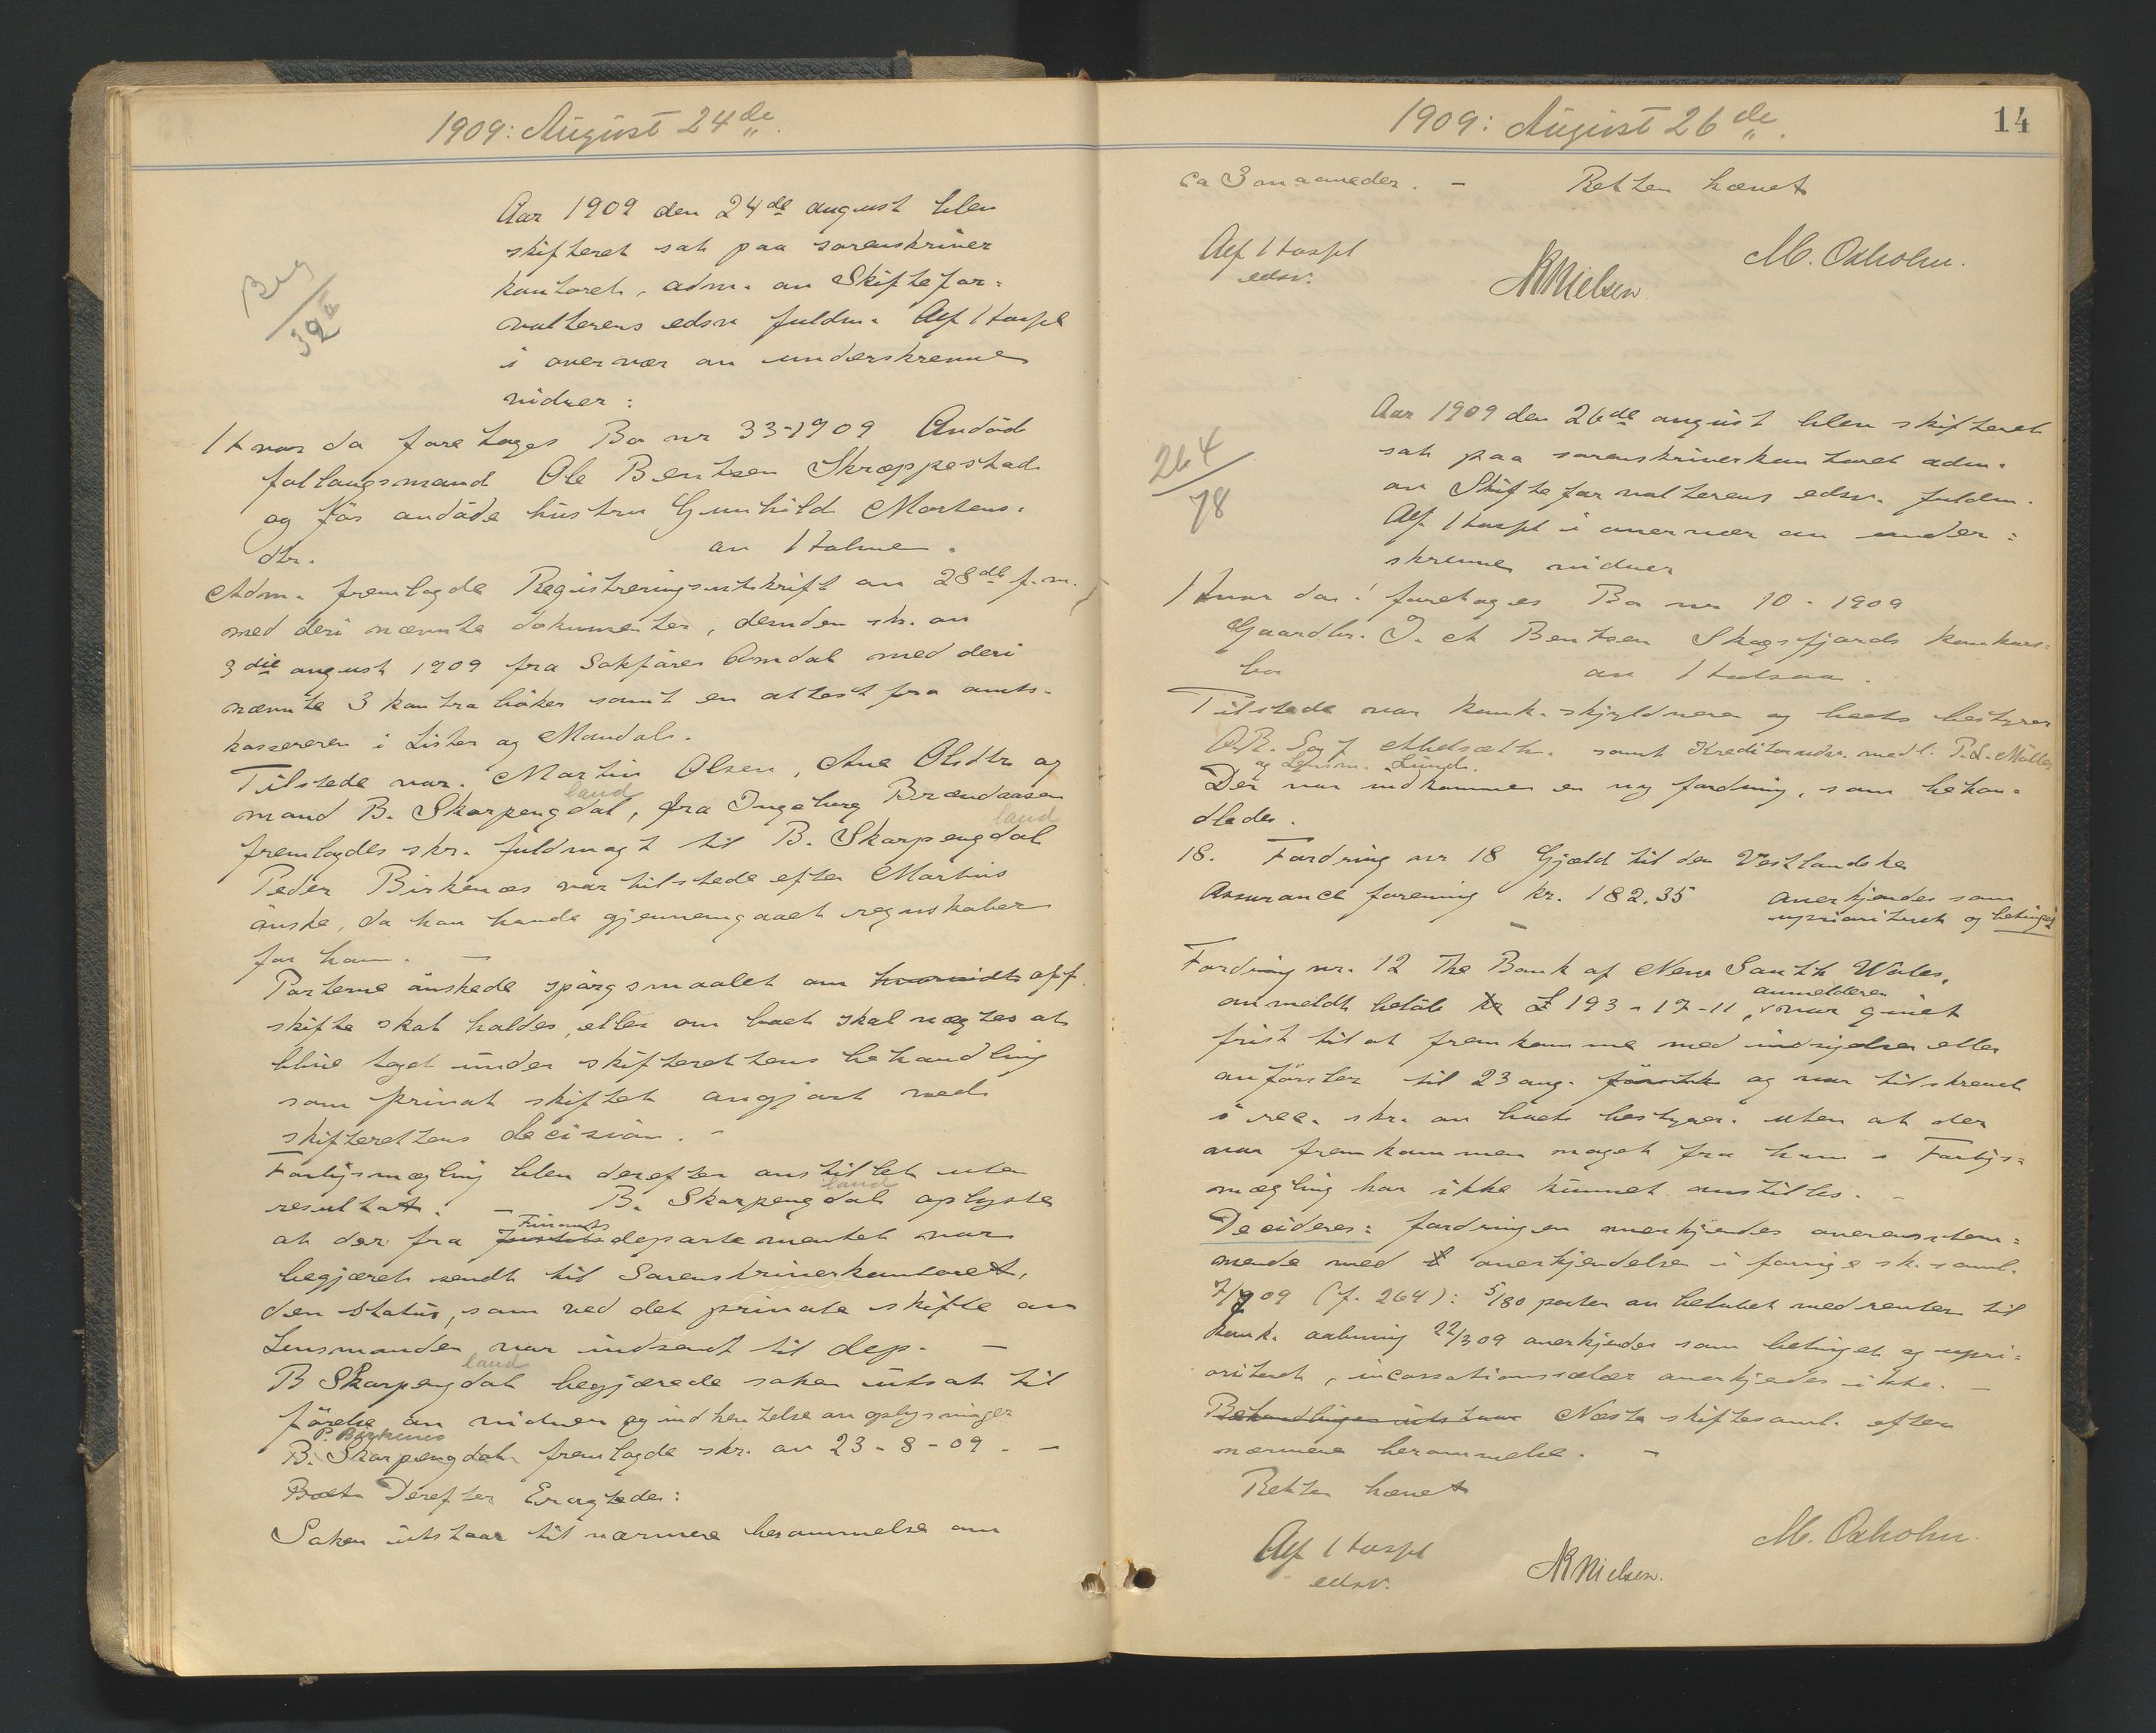 1909: August 24de
Aar 1909 den 24de august blev
skifteret sat paa sorenskriver
kontoret, adm. av Skiftefor=
valterens edsv fuldm. Alf
i overvær av underskrevne
vidner:
Hvor da foretoges Bo nr 33-1909 Avdöd
follaugsmand Ole Bentsen Skræppestad
og för avdöde hustru Gunhild Mortens.
dtr. av Holme.
Adm. fremlagde Registreringsutskrift av 28de f.m.
med deri nævnte dokumenter, desuden skr. av
3die august 1909 fra Sakförer Omdal med deri
nævnte 3 kontraböker samt en attest fra amts-
kassereren i Lister og Mandals.
Tilstede var. Martin Olsen, Ane Olsdtr og
land
mand B. Skarpengdal, fra Ingeborg Brændaasen
land
fremlagdes skr. fuldmagt til B. Skarpengdal
Peder Birkenæs var tilstede efter Martins
önske, da han havde gjennemgaaet regnskaber
for ham. –
Parterne önskede spörgsmaalet om hvorvidt off.
skifte skal holdes, eller om boet skal nægtes at
blive taget under skifterettens behandling
som privat skiftet avgjort ved
skifterettens decision. –
Forligsmægling blev derefter anstillet uten
land
resultat. – B. Skarpengdal oplyste
Finants
at der fra Justits departementet var
begjæret sendt til Sorenskriverkontoret,
den status, som ved det private skifte av
Lensmanden var indsendt til dep. –
land
B Skarpengdal begjærede saken utsat til
förelse av vidner og indhentelse av oplysninger
P. Birkenes
B. Skarpengdal fremlagde skr. av 23-8-09. –
Boet Derefter Eragtedes:
Saken utstaar til nærmere berammelse om
1909: August 26de
14
ca 3 maaneder. – Retten hævet
Alf
edsv.
NNielsen
M. Oxholm.
264
78
Aar 1909 den 26de august blev skifteret
sat paa sorenskriverkontoret adm.
av Skifteforvalterens edsv. fuldm.
Alf i overvær av under=
skrevne vidner
Hvor da: foretoges Bo nr 10 - 1909
Gaardbr. Bentsen Skogsfjords konkurs=
bo av
Tilstede var konk. skyldneren og boets bestyrer
samt Kreditorudv. medl. Möller
og Lensm. Lunde.
Der var indkommen en ny fordring, som behan=
dledes.
18. Fordring nr 18 Gjæld til den Vestlandske
Assurance forening kr. 182.35 anerkjendes som
uprioriteret og betinget
Fordring nr. 12 The Bank of New South Wales,
anmelderen
anmeldt belöb kr £ 193-17-11, var givet
frist til at fremkomme med indsigelser eller
anförsler til 23 aug. og var tilskrevet
i rec. skr. av boets bestyrer. uten at der
var fremkommen noget fra ham. Forligs=
mægling har ikke kunnet anstilles. –
Decideres: fordringen anerkjendes overensstem=
mende med anerkjendelsen i forrige sk.saml.
7/7 09 (f. 264): 5/80 parter av belöbet med renter til
konk. aabning 22/3 09 anerkjendes som betinget og upri=
oriteret, incassationssalær anerkjendes ikke. –
Behandlingen utstaar Næste skiftesaml. efter
nærmere berammelse. –
Retten hævet
Alf
edsv.
NNielsen.
M. Oxholm